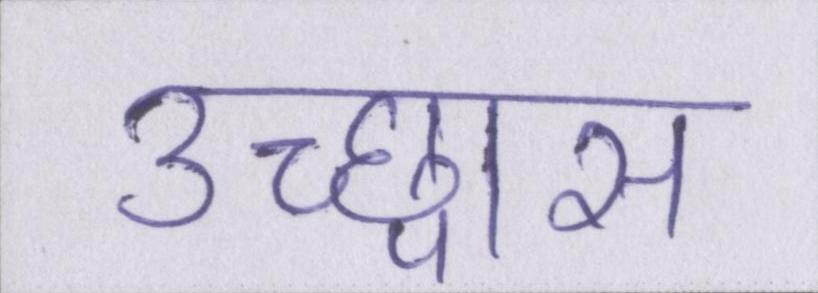 उच्छ्वास